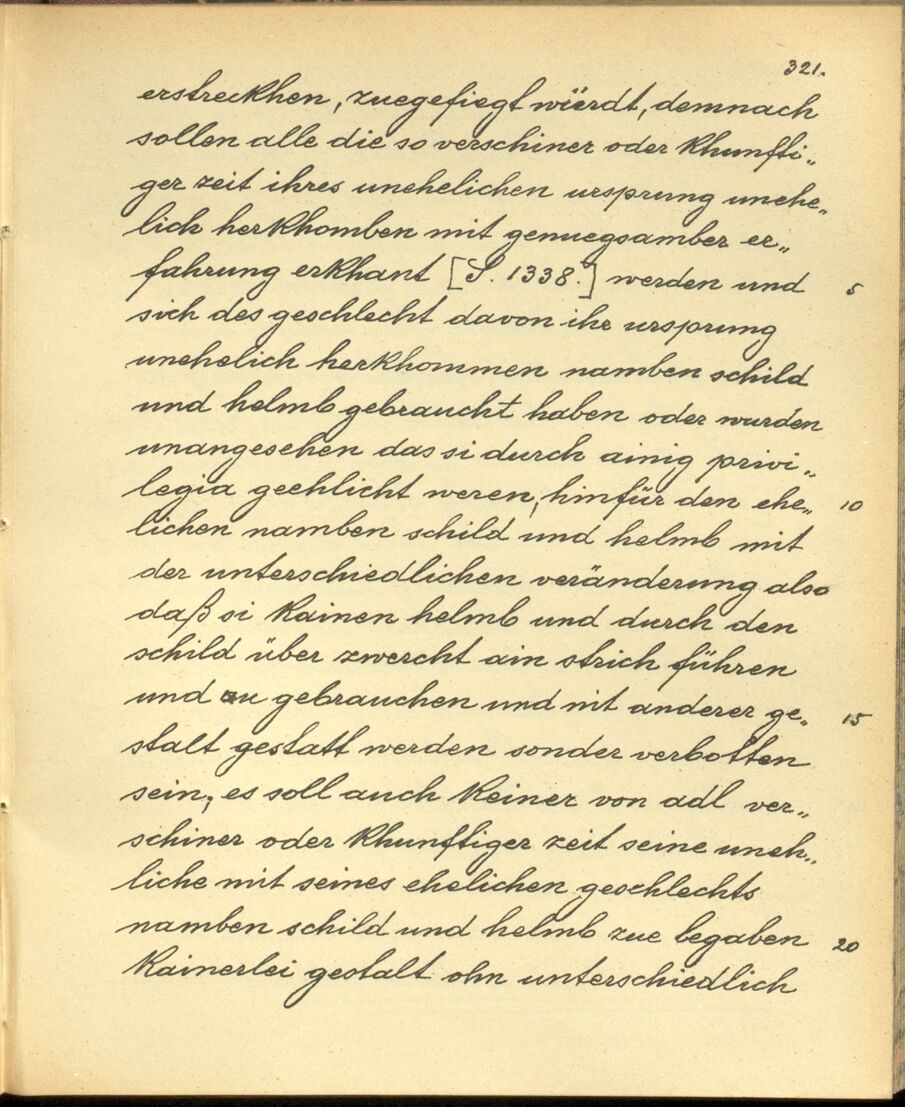 321.
erstreckhen, zuegefiegt wüerdt, demnach
sollen alle die so verschiner oder khunffti„
ger zeit ihres unehelichen ursprung unehe„
lich herkhomben mit genuegsamber er„
fahrung erkhant [S. 1338.] werden und 5
sich des geschlecht davon ihr ursprung
unehelich herkhommen namben schild
und helmb gebraucht haben oder wurden
unangesehen das si durch ainig privi„
legia geehlicht weren, hinfür den ehe„ 10
lichen namben schild und helmb mit
der unterschiedlichen veränderung also
daß si kainen helmb und durch den
schild über zwercht ain strich führen
und zu gebrauchen und nit anderer ge„ 15
stalt gestatt werden sonder verbotten
sein; es soll auch keiner von adl ver„
schiner oder khunfftiger zeit seine uneh„
liche mit seines ehelichen geschlechts
namben schild und helmb zue begaben 20
kainerlei gestalt ohn unterschiedlich